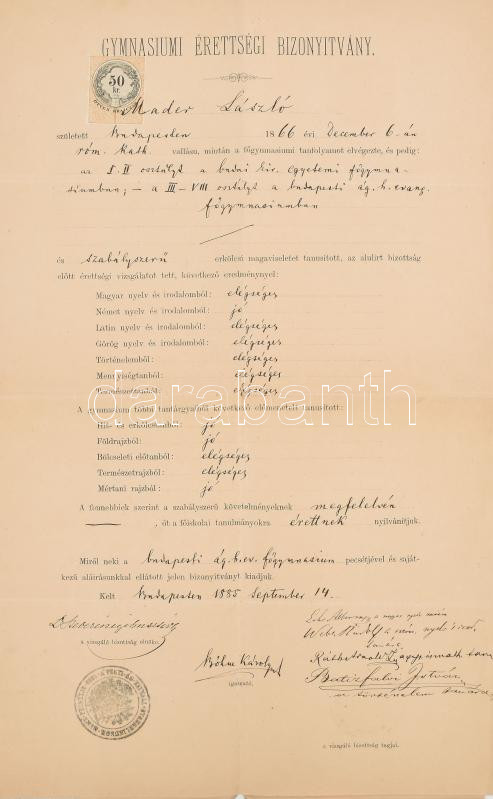 GYMNASIUMI ÉRETTSÉGI BIZONYITVÁNY.
50
kr.
Mader László
született Budapesten 1866 évi December 6-án
róm. kath. vallásu, miután a főgymnasiumi tanfolyamot elvégezte, és pedig:
az I-II osztályt a budai kir. egyetemi főgymna-
siumban; – a III–VIII osztályt a budapesti ág. h. evang.
főgymnasiumban
és szabályszerű erkölcsi magaviseletet tanusitott, az alulirt bizottság
előtt érettségi vizsgálatot tett, következő eredménynyel:
Magyar nyelv és irodalomból: elégséges
Német nyelv és irodalomból: jó
Latin nyelv és irodalomból: elégséges
Görög nyelv és irodalomból: elégséges
Történelemből: elégséges
Mennyiségtanból: elégséges
Természettanból: elégséges
darabanth
A gymnasium többi tantárgyaiból következő előmenetelt tanusitott:
Hit- és erkölcstanból: jó
Földrajzból: jó
Bölcseleti előtanból: elégséges
Természetrajzból: elégséges
Mértani rajzból: jó
A fennebbiek szerint a szabályszerű követelményeknek megfelelvén
, őt a főiskolai tanulmányokra érettnek nyilvánitjuk.
Miről neki a budapesti ág. h. ev. főgymnasium pecsétjével és saját-
kezű aláirásunkkal ellátott jelen bizonyitványt kiadjuk.
Kelt Budapesten 1885 September 14.
a vizsgáló bizottság elnöke.
Böhm Károly
igazgató.
Batizfalvi István
a történelem tanára
a vizsgáló bizottság tagjai.